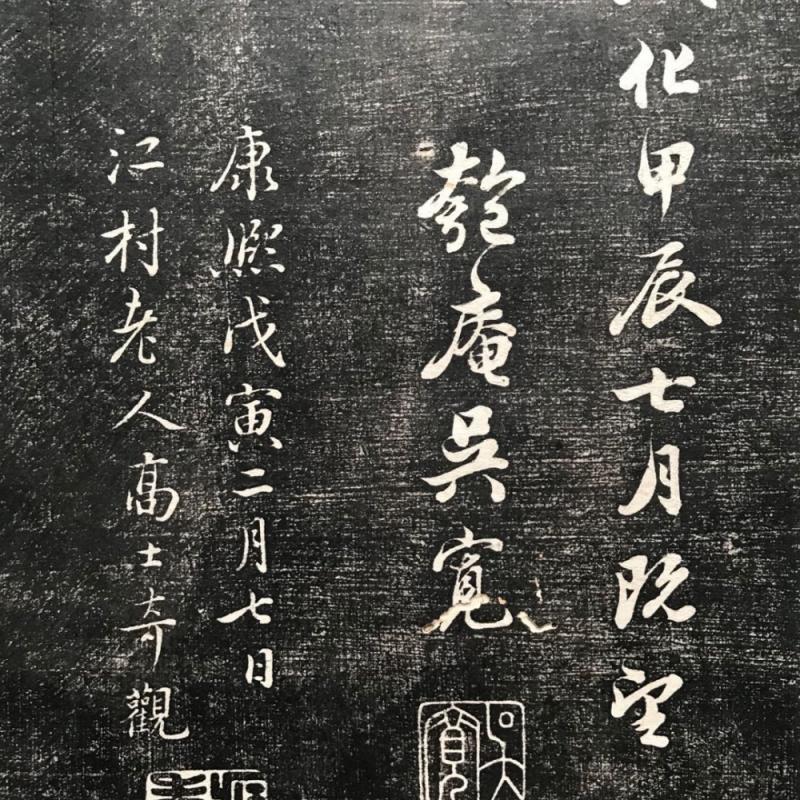 化甲辰七月既望
匏庵吳寬
康熙戊寅二月七日
江村老人高士奇觀